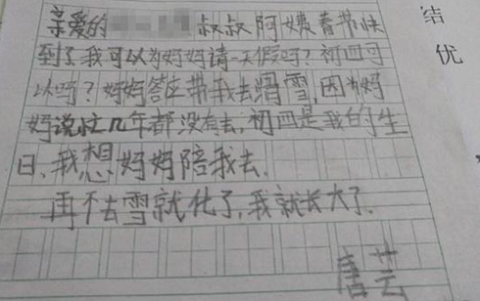 亲爱的 叔叔阿姨春节快
到了我可以为妈妈请一天假吗？初四可
以吗？妈妈答应带我去滑雪，因为妈
妈说忙几年都没有去，初四是我的生
日、我想妈妈陪我去.
再不去雪就化了，我就长大了.
唐芸
结
优